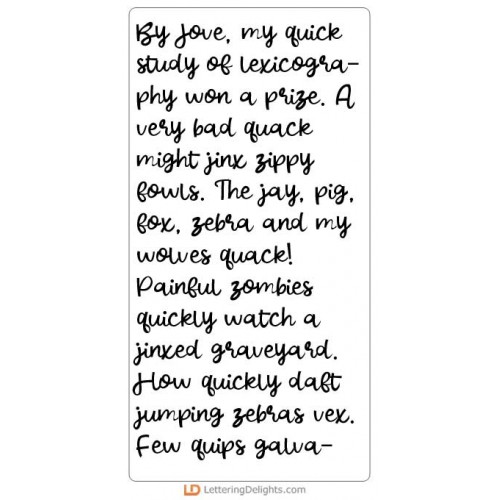 By Jove, my quick
study of lexicogra-
phy won a prize. A
very bad quack
might jinx zippy
fowls. The jay, pig,
fox, zebra and my
wolves quack!
Painful zombies
quickly watch a
jinxed graveyard.
How quickly daft
jumping zebras vex.
Few quips galva-
LD LetteringDelights.com